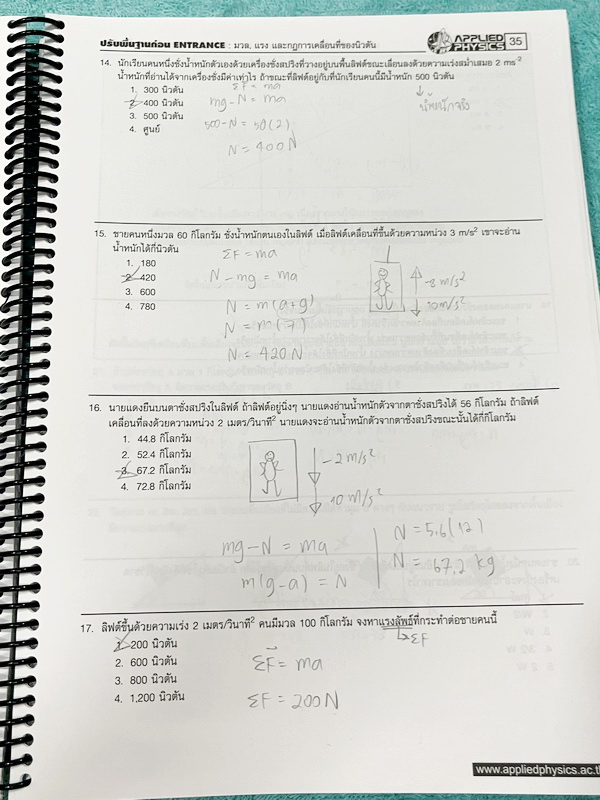 ปรับพื้นฐานก่อน ENTRANCE : มวล, แรง และกฎการเคลื่อนที่ของนิวตัน
APPLIED PHYSICS 35
14. นักเรียนคนหนึ่งชั่งน้ำหนักตัวเองด้วยเครื่องชั่งสปริงที่วางอยู่บนพื้นลิฟต์ขณะเลื่อนลงด้วยความเร่งสม่ำเสมอ 2 ms⁻²
น้ำหนักที่อ่านได้จากเครื่องชั่งมีค่าเท่าไร ถ้าขณะที่ลิฟต์อยู่กับที่นักเรียนคนนี้มีน้ำหนัก 500 นิวตัน
1. 300 นิวตัน
2. 400 นิวตัน
3. 500 นิวตัน
4. ศูนย์
ΣF = ma
mg - N = ma
500 - N = 50(2)
N = 400 N
น้ำหนักจริง
15. ชายคนหนึ่งมวล 60 กิโลกรัม ชั่งน้ำหนักตนเองในลิฟต์ เมื่อลิฟต์เคลื่อนที่ขึ้นด้วยความหน่วง 3 m/s² เขาจะอ่าน
น้ำหนักได้กี่นิวตัน
1. 180
2. 420
3. 600
4. 780
ΣF = ma
N - mg = ma
N = m(a+g)
N = m(7)
N = 420 N
10 m/s²
16. นายแดงยืนบนตาชั่งสปริงในลิฟต์ ถ้าลิฟต์อยู่นิ่งๆ นายแดงอ่านน้ำหนักตัวจากตาชั่งสปริงได้ 56 กิโลกรัม ถ้าลิฟต์
เคลื่อนที่ลงด้วยความหน่วง 2 เมตร/วินาที² นายแดงจะอ่านน้ำหนักตัวจากตาชั่งสปริงขณะนั้นได้กี่กิโลกรัม
1. 44.8 กิโลกรัม
2. 52.4 กิโลกรัม
3. 67.2 กิโลกรัม
4. 72.8 กิโลกรัม
-2 m/s²
10 m/s²
mg - N = ma
m(g-a) = N
N = 5.6(12)
N = 67.2 kg
17. ลิฟต์ขึ้นด้วยความเร่ง 2 เมตร/วินาที² คนมีมวล 100 กิโลกรัม จงหาแรงลัพธ์ที่กระทำต่อชายคนนี้
ΣF
1. 200 นิวตัน
2. 600 นิวตัน
3. 800 นิวตัน
4. 1,200 นิวตัน
ΣF = ma
ΣF = 200 N
www.appliedphysics.ac.t